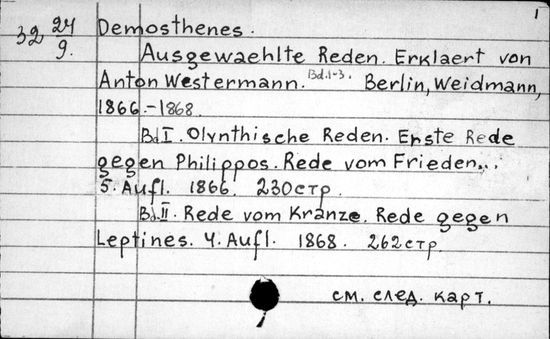 1
32 24/9. Demosthenes.
Ausgewaehlte Reden. Erklaert von
Anton Westermann. Bd.1-3. Berlin, Weidmann,
1866.-1868.
Bd I. Olynthische Reden. Erste Rede
gegen Philippos. Rede vom Frieden...
5. Aufl. 1866. 230 стр.
Bd. II. Rede vom Kranze. Rede gegen
Leptines. 4. Aufl. 1868. 262 стр.
см. след. карт.